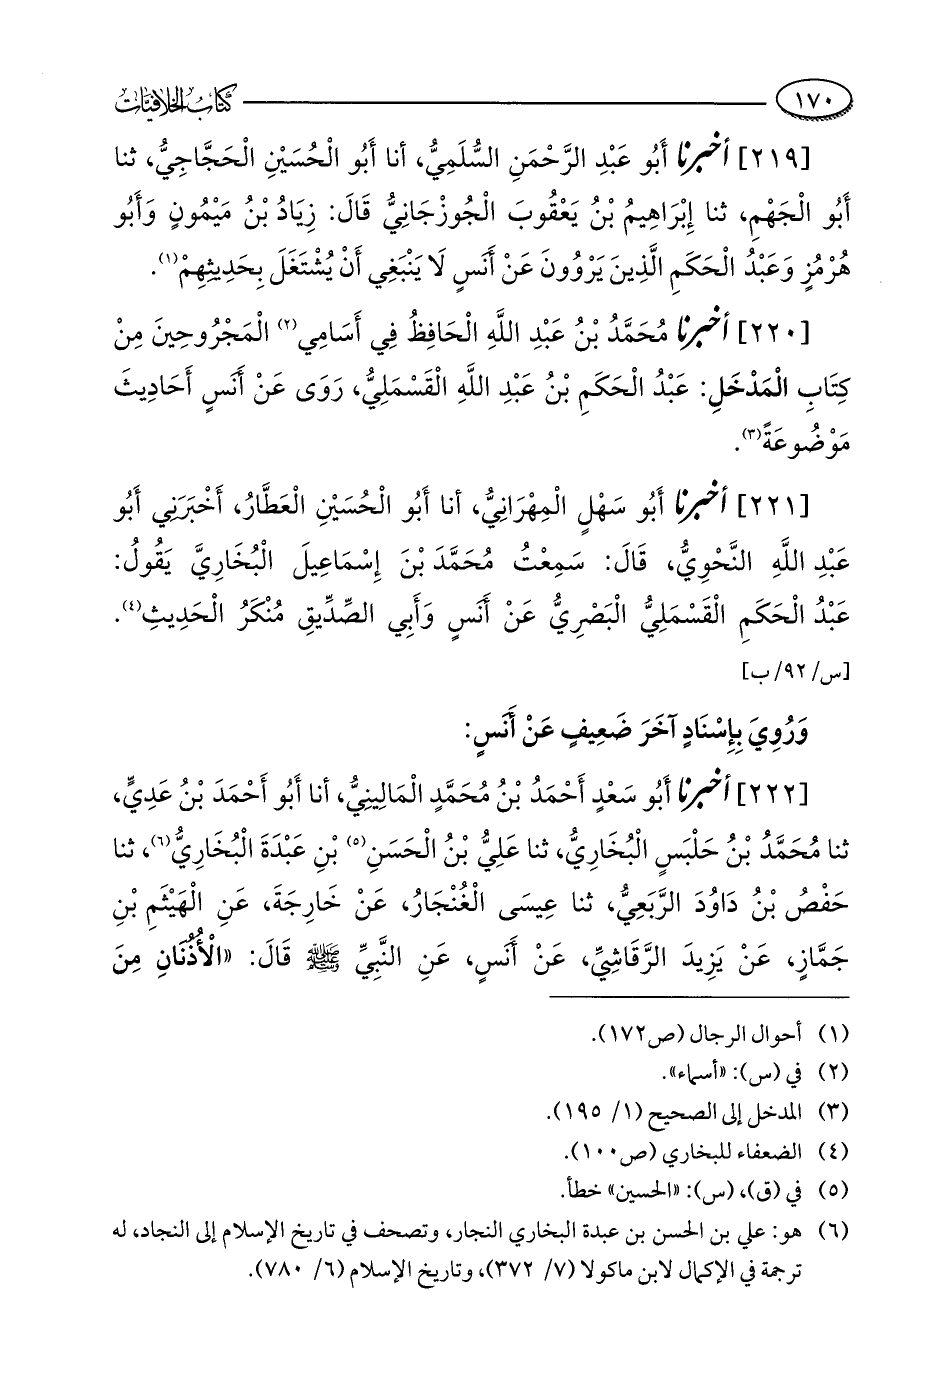 ١٧٠ كتاب الخلافيات
[٢١٩] أخبرنا أَبُو عَبْدِ الرَّحْمَنِ السُّلَمِيُّ، أنا أَبُو الْحُسَيْنِ الْحَجَّاجِيُّ، ثنا
أَبُو الْجَهْمِ، ثنا إِبْرَاهِيمُ بْنُ يَعْقُوبَ الْجُوزْجَانِيُّ قَالَ: زِيَادُ بْنُ مَيْمُونٍ وَأَبُو
هُرْمُزٍ وَعَبْدُ الْحَكَمِ الَّذِينَ يَرْوُونَ عَنْ أَنَسٍ لَا يَنْبَغِي أَنْ يُشْتَغَلَ بِحَدِيثِهِمْ(١).
[٢٢٠] أخبرنا مُحَمَّدُ بْنُ عَبْدِ اللَّهِ الْحَافِظُ فِي أَسَامِي(٢) الْمَجْرُوحِينَ مِنْ
كِتَابِ الْمَدْخَلِ: عَبْدُ الْحَكَمِ بْنُ عَبْدِ اللَّهِ الْقَسْمَلِيُّ، رَوَى عَنْ أَنَسٍ أَحَادِيثَ
مَوْضُوعَةً(٣).
[٢٢١] أخبرنا أَبُو سَهْلٍ الْمِهْرَانِيُّ، أنا أَبُو الْحُسَيْنِ الْعَطَّارُ، أَخْبَرَنِي أَبُو
عَبْدِ اللَّهِ النَّحْوِيُّ، قَالَ: سَمِعْتُ مُحَمَّدَ بْنَ إِسْمَاعِيلَ الْبُخَارِيَّ يَقُولُ:
عَبْدُ الْحَكَمِ الْقَسْمَلِيُّ الْبَصْرِيُّ عَنْ أَنَسٍ وَأَبِي الصِّدِّيقِ مُنْكَرُ الْحَدِيثِ(٤).
[س/ ٩٢/ ب]
وَرُوِيَ بِإِسْنَادٍ آخَرَ ضَعِيفٍ عَنْ أَنَسٍ:
[٢٢٢] أخبرنا أَبُو سَعْدٍ أَحْمَدُ بْنُ مُحَمَّدٍ الْمَالِينِيُّ، أنا أَبُو أَحْمَدَ بْنُ عَدِيٍّ،
ثنا مُحَمَّدُ بْنُ حَلْبَسٍ الْبُخَارِيُّ، ثنا عَلِيُّ بْنُ الْحَسَنِ(٥) بْنِ عَبْدَةَ الْبُخَارِيُّ(٦)، ثنا
حَفْصُ بْنُ دَاوُدَ الرَّبَعِيُّ، ثنا عِيسَى الْغُنْجَارُ، عَنْ خَارِجَةَ، عَنِ الْهَيْثَمِ بْنِ
جَمَّازٍ، عَنْ يَزِيدَ الرَّقَاشِيِّ، عَنْ أَنَسٍ، عَنِ النَّبِيِّ ﷺ قَالَ: «الْأُذُنَانِ مِنَ
(١) أحوال الرجال (ص١٧٢).
(٢) في (س): «أسماء».
(٣) المدخل إلى الصحيح (١/ ١٩٥).
(٤) الضعفاء للبخاري (ص١٠٠).
(٥) في (ق)، (س): «الحسين» خطأ.
(٦) هو: علي بن الحسن بن عبدة البخاري النجار، وتصحف في تاريخ الإسلام إلى النجاد، له
ترجمة في الإكمال لابن ماكولا (٧/ ٣٧٢)، وتاريخ الإسلام (٦/ ٧٨٠).